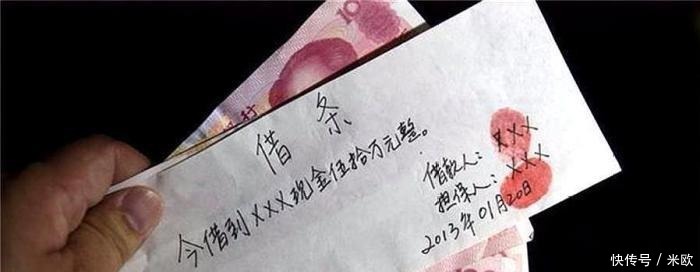 借条
今借到XXX现金伍拾万元整。
借款人：XXX
担保人：XXX
2013年01月20日
快传号 / 米欧